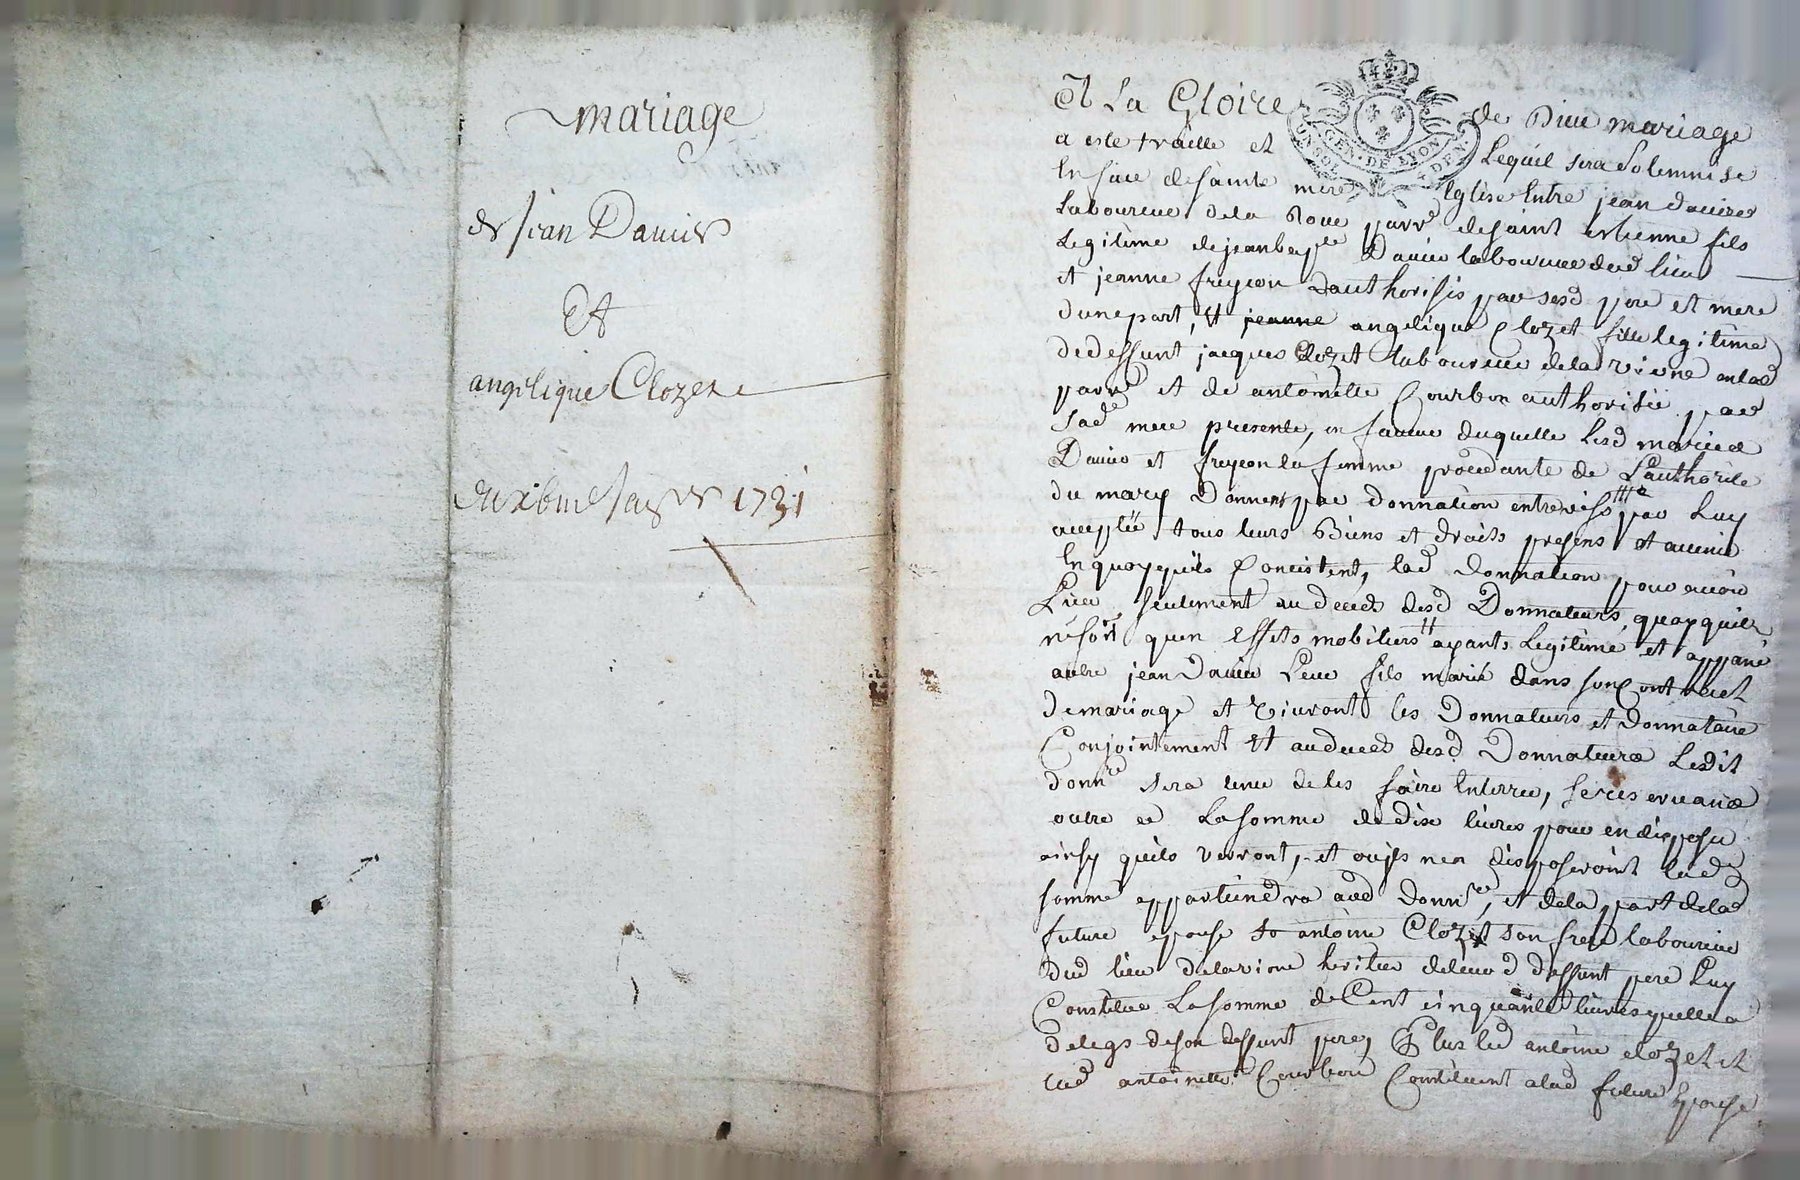 mariage
de jean Davier
Et
angelique Clozet
1731
A La Gloire de Dieu mariage
GEN · DE LYON
a este traitté et Lequel sera Solemnisé
En face de sainte mere Eglise Entre jean davier
Laboureur dela parre de saint estienne fils
Legitime de jean bapte Davier laboureur dud lieu
et jeanne freycon authorisés par sesd pere et mere
dune part, Et jeanne angelique Clozet fille legitime
de deffunt jacques Clozet laboureur dela vione en lad
parre et de antoinette Courbon authorisée par
Sade mere presente, en faveur duquelle Lesd mariés
Davier et freycon sa femme procedante de L'authorité
du mary Donnent par donnation entrevifs par Luy
acceptée tous leurs Biens et droits presens et avenir
En quoy quils Concistent, lad donnation pour avoir
Lieu seulement au deceds desd Donnateurs, quoy quilz
ne soit quen Effets mobiliers ayants Legitimé et appané
autre jean Davier Leur fils marié dans son Contract
de mariage et vivront les Donnateurs et donnataire
Conjointement Et au deceds desd Donnateurs Ledit
donnre sera tenu de les faire Enterrer, se reservans
outre ce La somme de dix livres pour en disposer
ainsy quils verront, et ou ils nen disposeroint lad
somme appartiendra aud donnre, et dela part delad
future epouse antoine Clozet son frere laboureur
dud lieu delavione heritier deleurd deffunt pere Luy
Constitue La somme de Cent cinquante livres quelle a
delegs deson deffunt pere, Plus led antoine clozet et
lad antoinette Courbon Constituent alad future Epouse